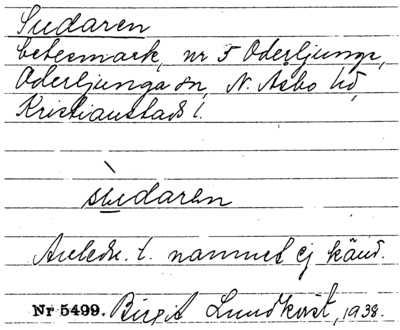 Sudaren
betesmark, nr 5 Oderljunga,
Oderljunga sn, N. Åsbo hd,
Kristianstads l.
sùdaren
Anledn. t. namnet ej känd.
Nr 5499. Birgit Lundkvist, 1938.